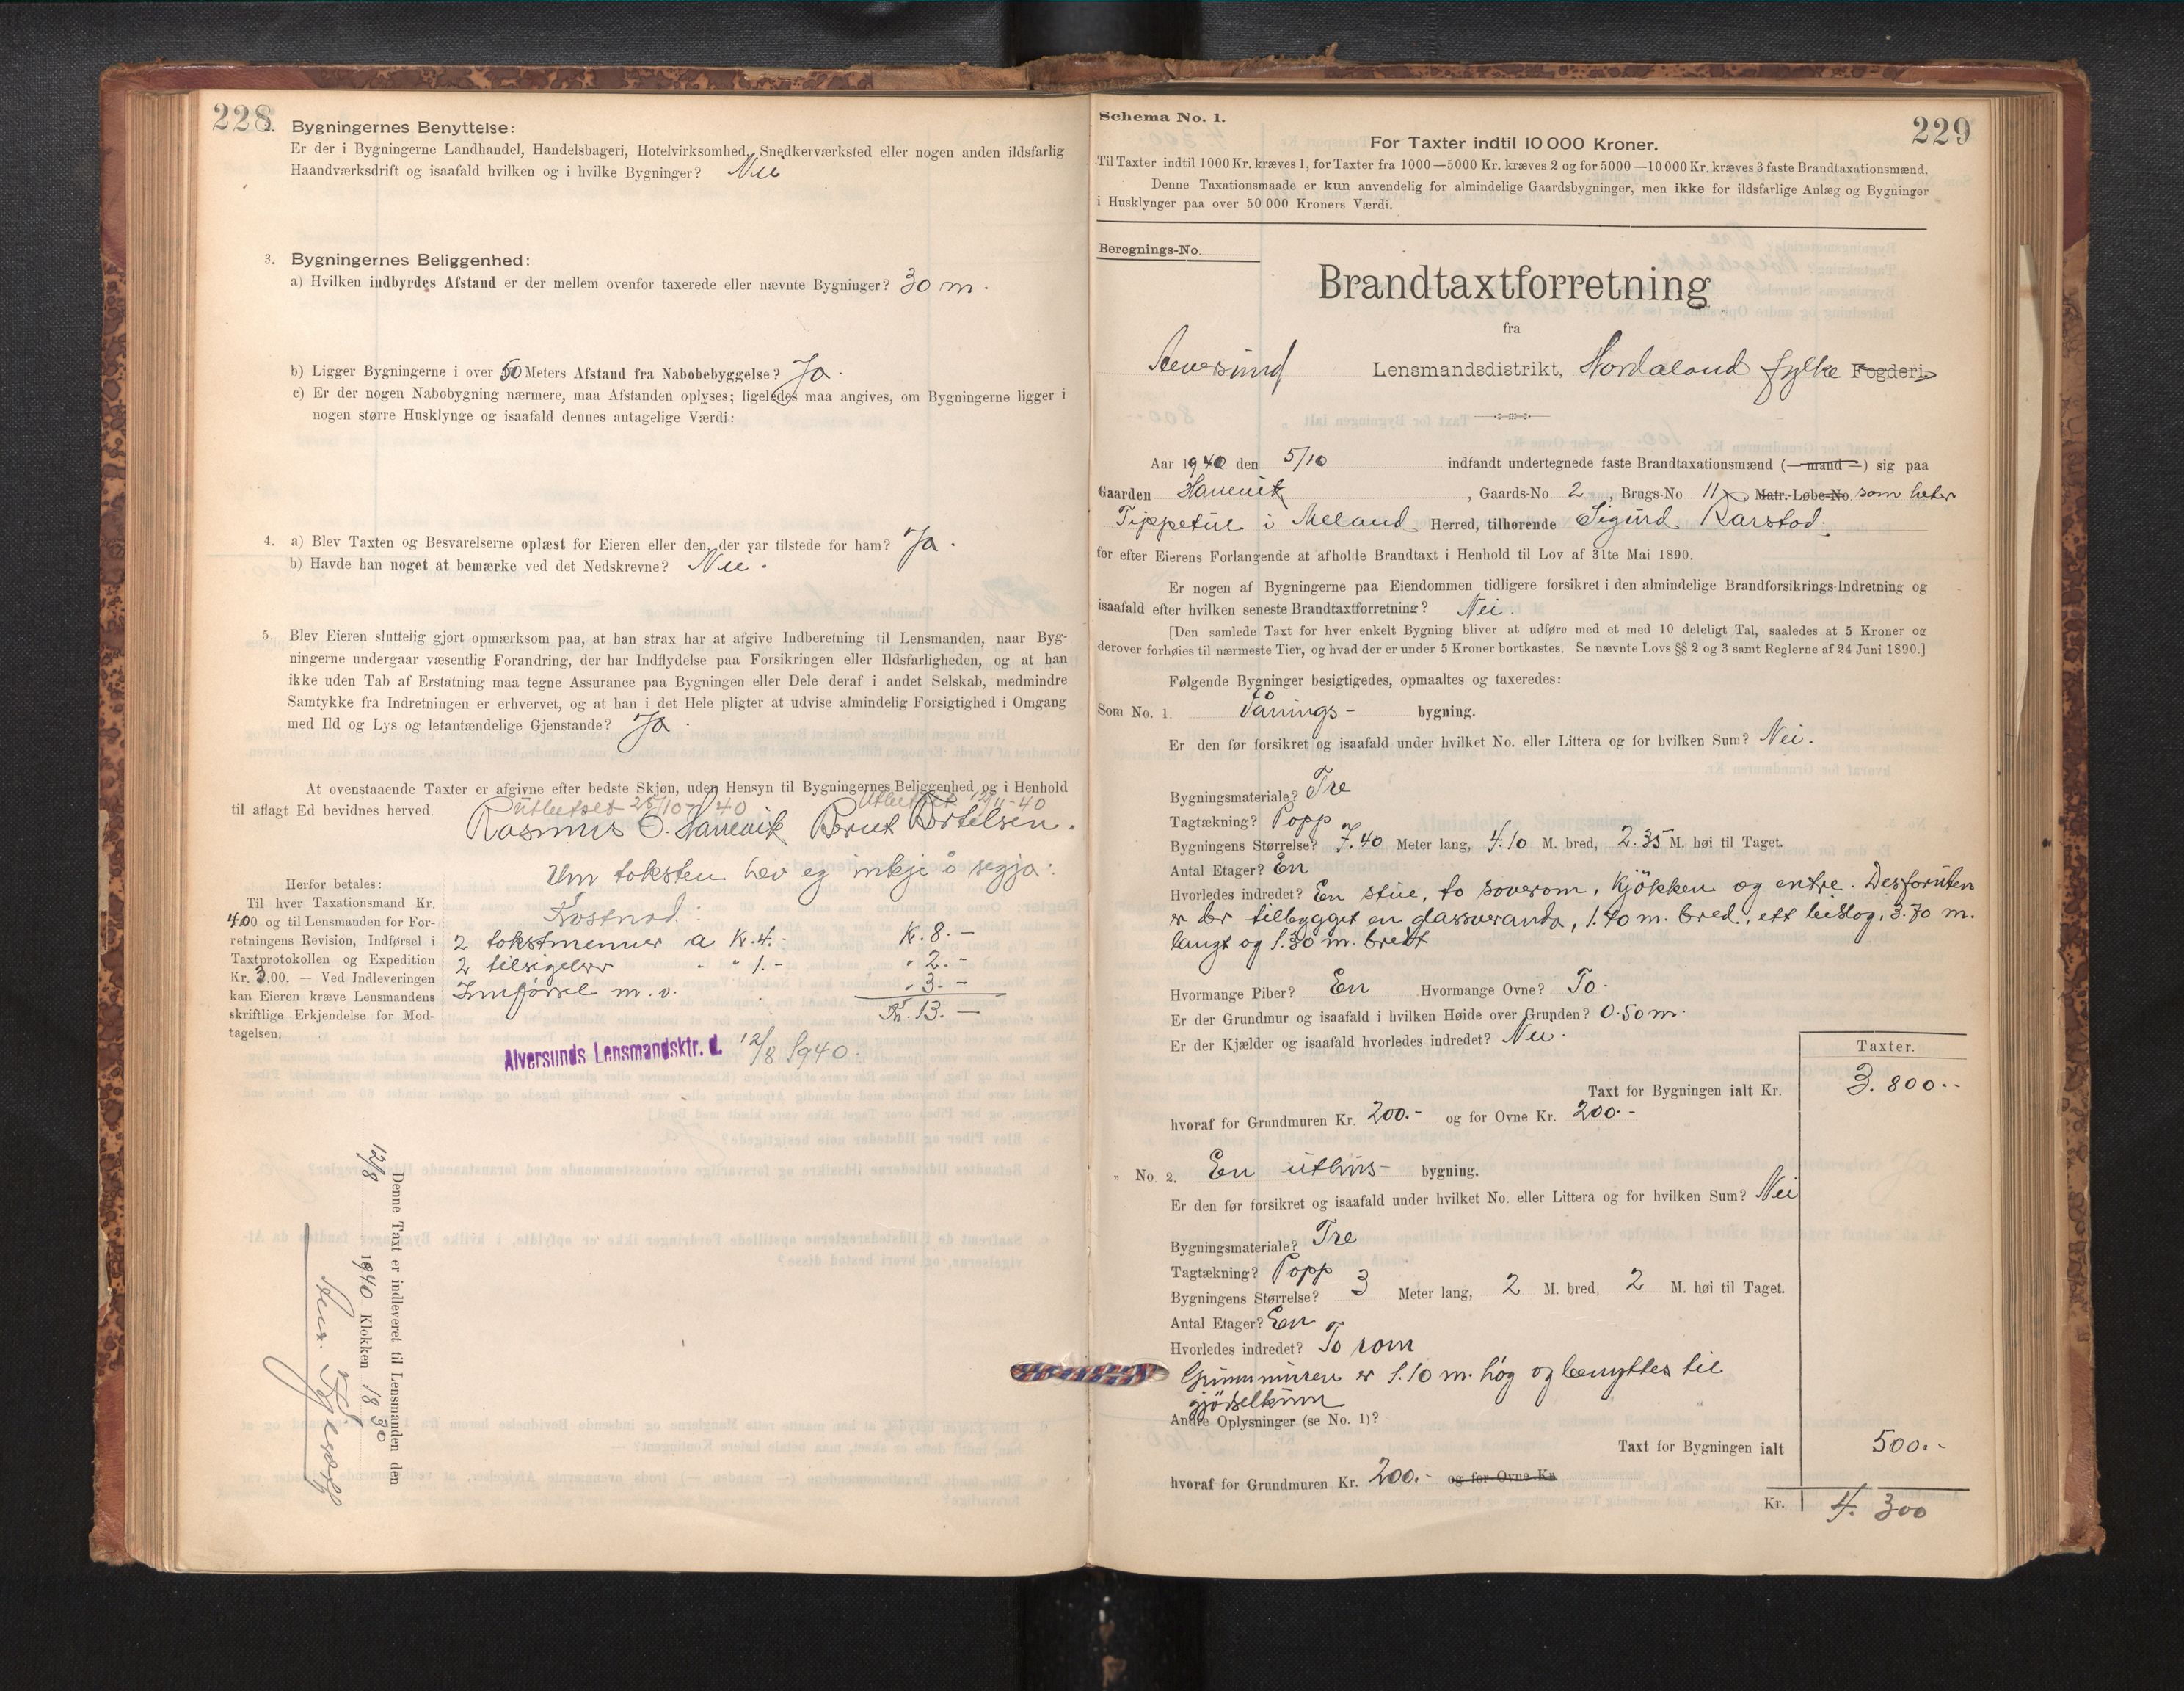 228
2. Bygningernes Benyttelse:
Er der i Bygningerne Landhandel, Handelsbageri, Hotelvirksomhed, Snedkerværksted eller nogen anden ildsfarlig
Haandværksdrift og isaafald hvilken og i hvilke Bygninger? Nei
3. Bygningernes Beliggenhed:
a) Hvilken indbyrdes Afstand er der mellem ovenfor taxerede eller nævnte Bygninger? 30 m.
b) Ligger Bygningerne i over 50 Meters Afstand fra Nabobebyggelse? Ja.
c) Er der nogen Nabobygning nærmere, maa Afstanden oplyses; ligeledes maa angives, om Bygningerne ligger i
nogen større Husklynge og isaafald dennes antagelige Værdi:
4. a) Blev Taxten og Besvarelserne oplæst for Eieren eller den, der var tilstede for ham? Ja.
b) Havde han noget at bemærke ved det Nedskrevne? Nei.
5. Blev Eieren sluttelig gjort opmærksom paa, at han strax har at afgive Indberetning til Lensmanden, naar Byg-
ningerne undergaar væsentlig Forandring, der har Indflydelse paa Forsikringen eller Ildsfarligheden, og at han
ikke uden Tab af Erstatning maa tegne Assurance paa Bygningen eller Dele deraf i andet Selskab, medmindre
Samtykke fra Indretningen er erhvervet, og at han i det Hele pligter at udvise almindelig Forsigtighed i Omgang
med Ild og Lys og letantændelige Gjenstande? Ja.
At ovenstaaende Taxter er afgivne efter bedste Skjøn, uden Hensyn til Bygningernes Beliggenhed og i Henhold
til aflagt Ed bevidnes herved.
Utbetset 25/10-40 12/11-40
Rasmus O. Hanevik Bernt Bertilsen.
Um taksten hev eg inkje å segja:
Herfor betales:
Til hver Taxationsmand Kr.
4.00 og til Lensmanden for For-
retningens Revision, Indførsel i
Taxtprotokollen og Expedition
Kr. 3.00. — Ved Indleveringen
kan Eieren kræve Lensmandens
skriftlige Erkjendelse for Mod-
tagelsen.
Kostnad:
2 takstmenner a Kr. 4.- Kr. 8.-
2 tilsigelser - " 1.- " 2.-
Innførsel m.v. " 3.-
Kr. 13.-
Alversunds Lensmandsktr. d. 12/8 1940.
Denne Taxt er indleveret til Lensmanden den
12/8 1940 Klokken 18 30
229
Schema No. 1.
For Taxter indtil 10 000 Kroner.
Til Taxter indtil 1000 Kr. kræves 1, for Taxter fra 1000—5000 Kr. kræves 2 og for 5000—10 000 Kr. kræves 3 faste Brandtaxationsmænd.
Denne Taxationsmaade er kun anvendelig for almindelige Gaardsbygninger, men ikke for ildsfarlige Anlæg og Bygninger
i Husklynger paa over 50 000 Kroners Værdi.
Beregnings-No.
Brandtaxtforretning
fra
Alversund Lensmandsdistrikt, Hordaland fylke Fogderi.
Aar 1940 den 5/10 indfandt undertegnede faste Brandtaxationsmænd (—mand—) sig paa
Gaarden Hanevik, Gaards-No 2, Brugs-No 11, Matr.-Løbe-No som heter
Tippetue i Meland Herred, tilhørende Sigurd Rarstad.
for efter Eierens Forlangende at afholde Brandtaxt i Henhold til Lov af 31te Mai 1890.
Er nogen af Bygningerne paa Eiendommen tidligere forsikret i den almindelige Brandforsikrings-Indretning og
isaafald efter hvilken seneste Brandtaxtforretning? Nei.
[Den samlede Taxt for hver enkelt Bygning bliver at udføre med et med 10 deleligt Tal, saaledes at 5 Kroner og
derover forhøies til nærmeste Tier, og hvad der er under 5 Kroner bortkastes. Se nævnte Lovs §§ 2 og 3 samt Reglerne af 24 Juni 1890.]
Følgende Bygninger besigtigedes, opmaaltes og taxeredes:
Som No. 1. Vånings- bygning.
Er den før forsikret og isaafald under hvilket No. eller Littera og for hvilken Sum? Nei.
Bygningsmateriale? Tre
Tagtækning? Papp
Bygningens Størrelse? 7.40 Meter lang, 4.10 M. bred, 2.35 M. høi til Taget.
Antal Etager? En
Hvorledes indredet? En stue, to soverom, kjøkken og entre. Desforuten
er der tilbygget en glassveranda, 1.70 m. bred, ett bislag, 3.70 m.
langt og 1.30 m. bredt
Hvormange Piber? En Hvormange Ovne? To.
Er der Grundmur og isaafald i hvilken Høide over Grunden? 0.50 m.
Er der Kjælder og isaafald hvorledes indredet? Nei.
Taxter.
Taxt for Bygningen ialt Kr. 3.800.-
hvoraf for Grundmuren Kr. 200.- og for Ovne Kr. 200.-
" No. 2. En uthus- bygning.
Er den før forsikret og isaafald under hvilket No. eller Littera og for hvilken Sum? Nei
Bygningsmateriale? Tre
Tagtækning? Papp
Bygningens Størrelse? 3 Meter lang, 2 M. bred, 2 M. høi til Taget.
Antal Etager? En
Hvorledes indredet? To rom
Grunnmuren er 1.10 m. høg og benyttes til
gjødselkum
Andre Oplysninger (se No. 1)?
Taxt for Bygningen ialt 500.-
hvoraf for Grundmuren Kr. 200.- og for Ovne Kr.
Kr. 4.300